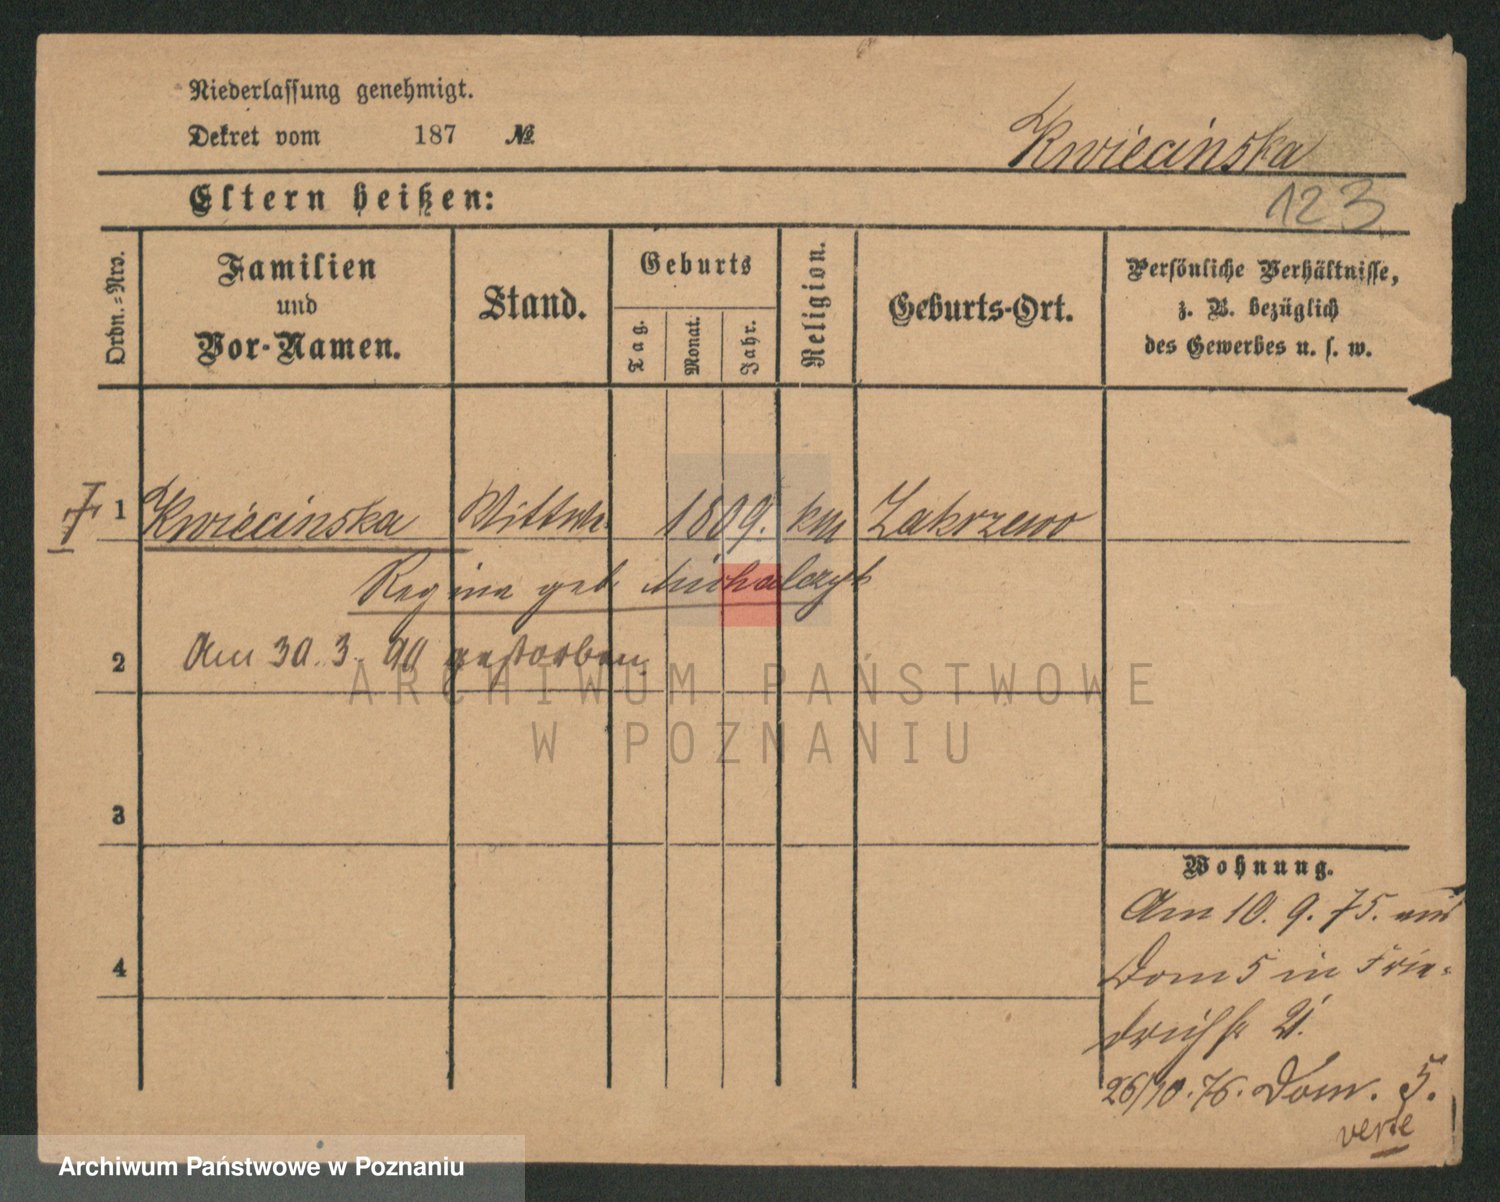 Niederlassung genehmigt.
Dekret vom 187 №
Kwiecinska
Eltern heißen:
123
Ordn.-Nro.
Familien
und
Vor-Namen.
Stand.
Geburts
Tag.
Monat.
Jahr.
Religion.
Geburts-Ort.
Persönliche Verhältnisse,
z. B. bezüglich
des Gewerbes u. s. w.
1 Kwiecinska Wittwe 1809. Zakrzewo
Regina geb. Michalczyk
2 Am 30.3.90 gestorben.
ARCHIWUM PAŃSTWOWE
W POZNANIU
3
Wohnung.
Am 10.9.75. aus
Dom 5 in Frie-
4
drichstr 21.
26/10.76. Dom. 5.
verte
Archiwum Państwowe w Poznaniu